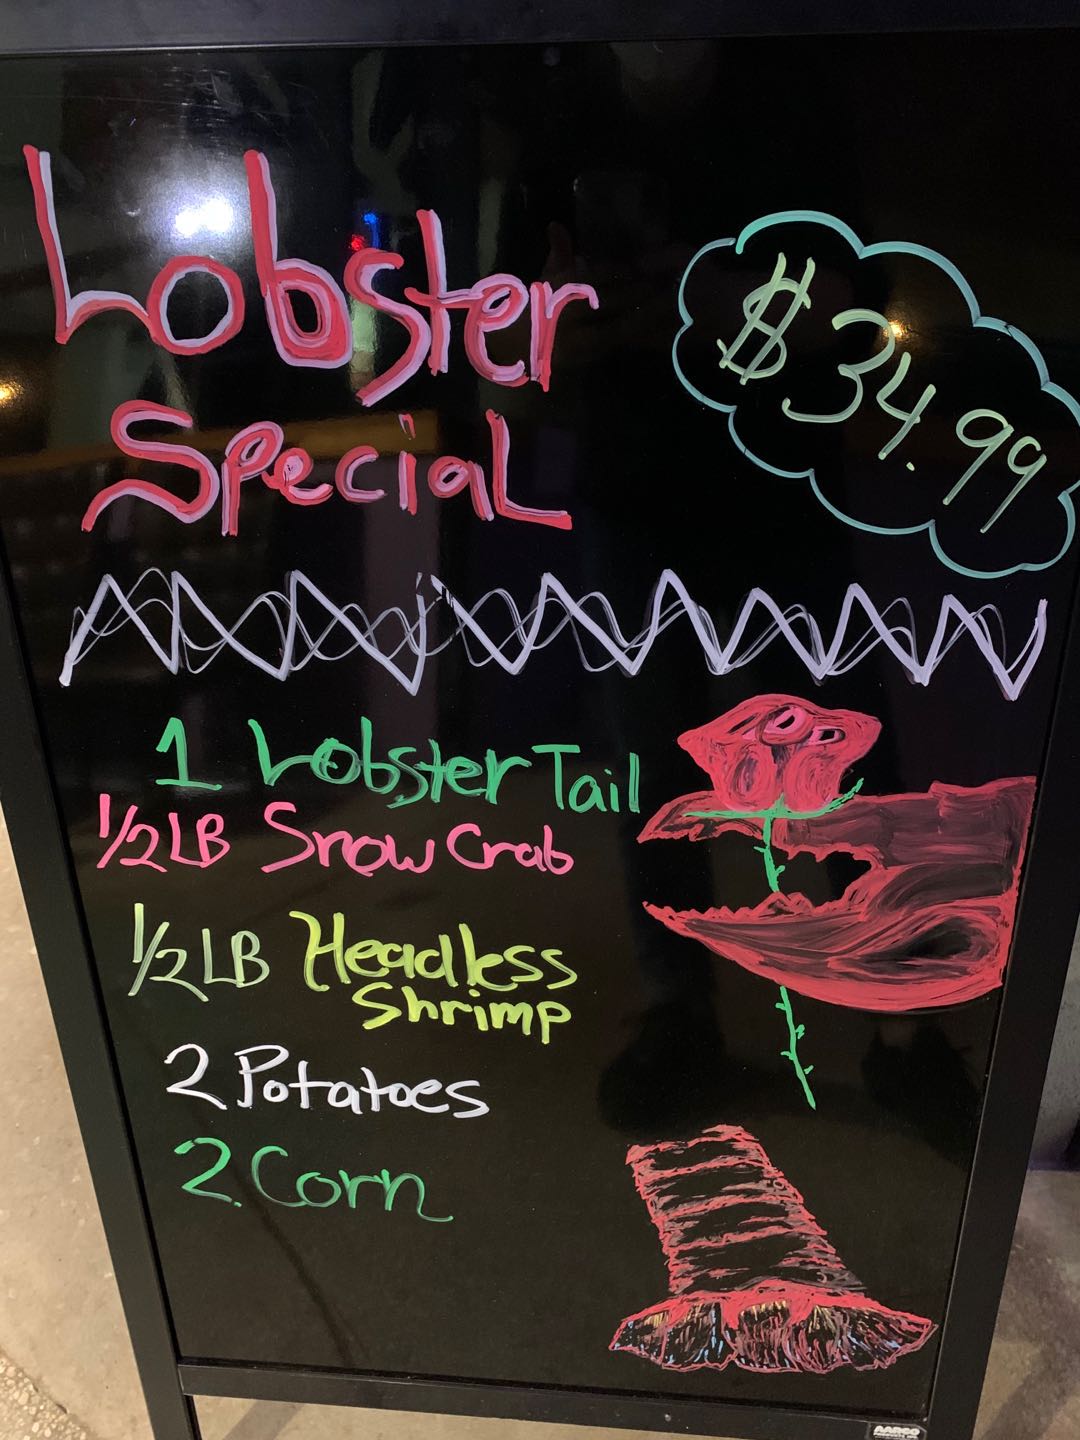 Lobster
Special
$34.99
1 Lobster Tail
1/2 LB Snow Crab
1/2 LB Headless
Shrimp
2 Potatoes
2 Corn
AARCO